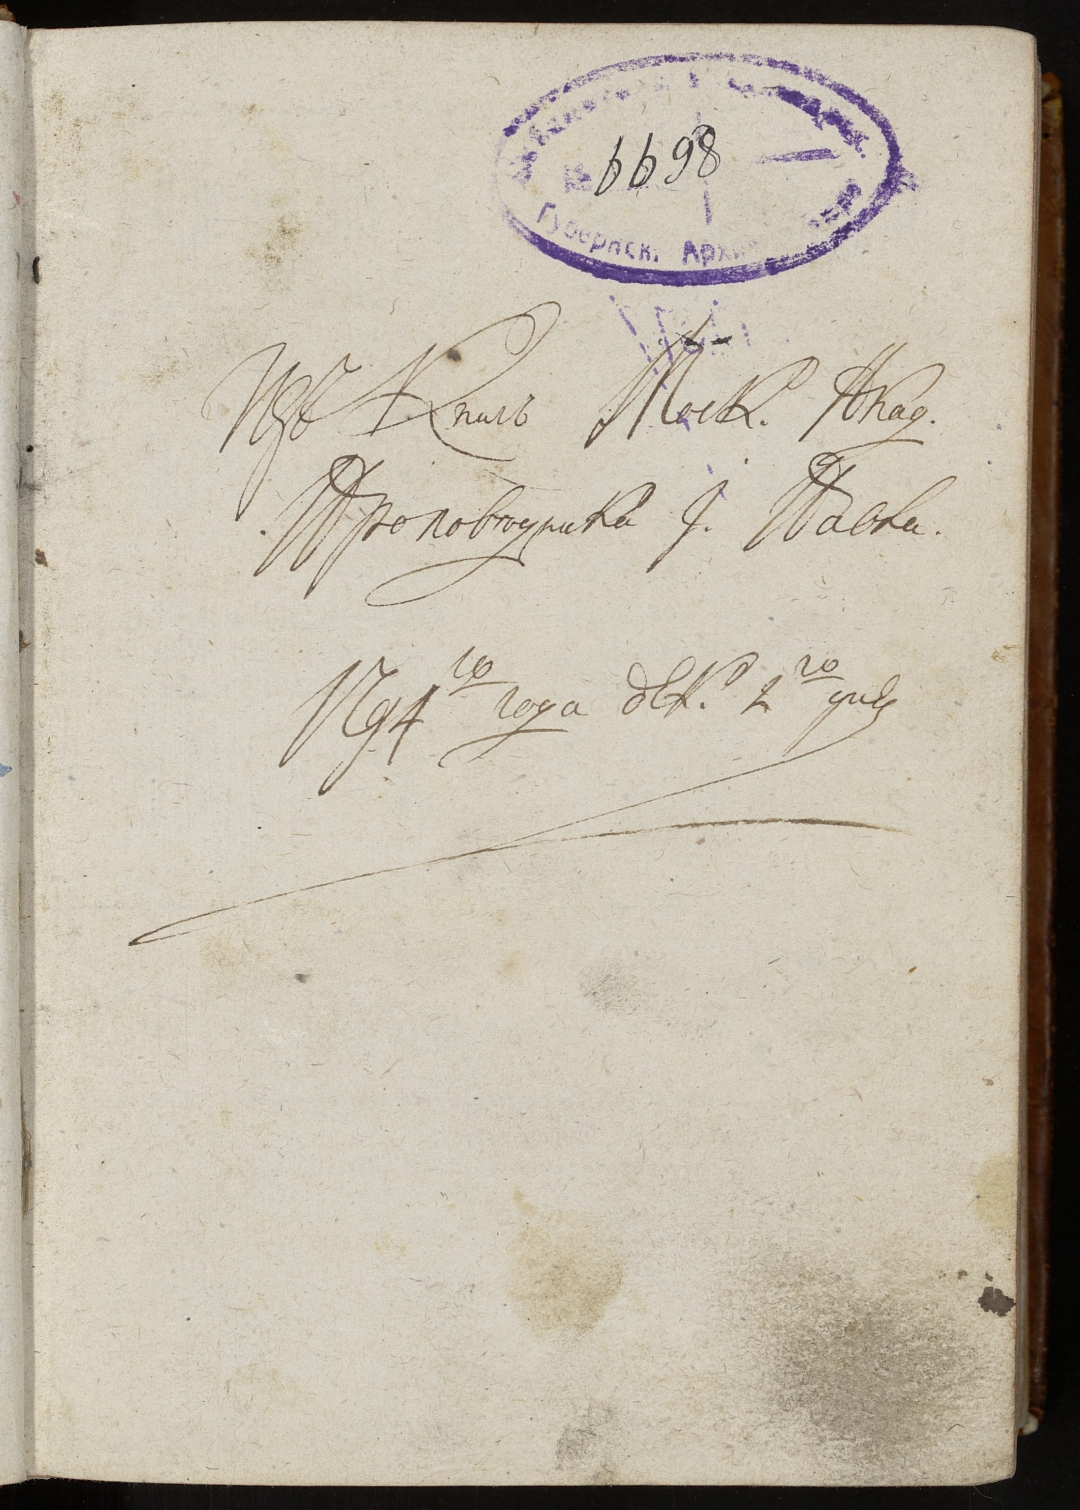 № 6698
Губернск. Архи
Изъ Книгъ Моск. Акад.
Проповѣдника J. Павла.
1794го года дек. 2го дня